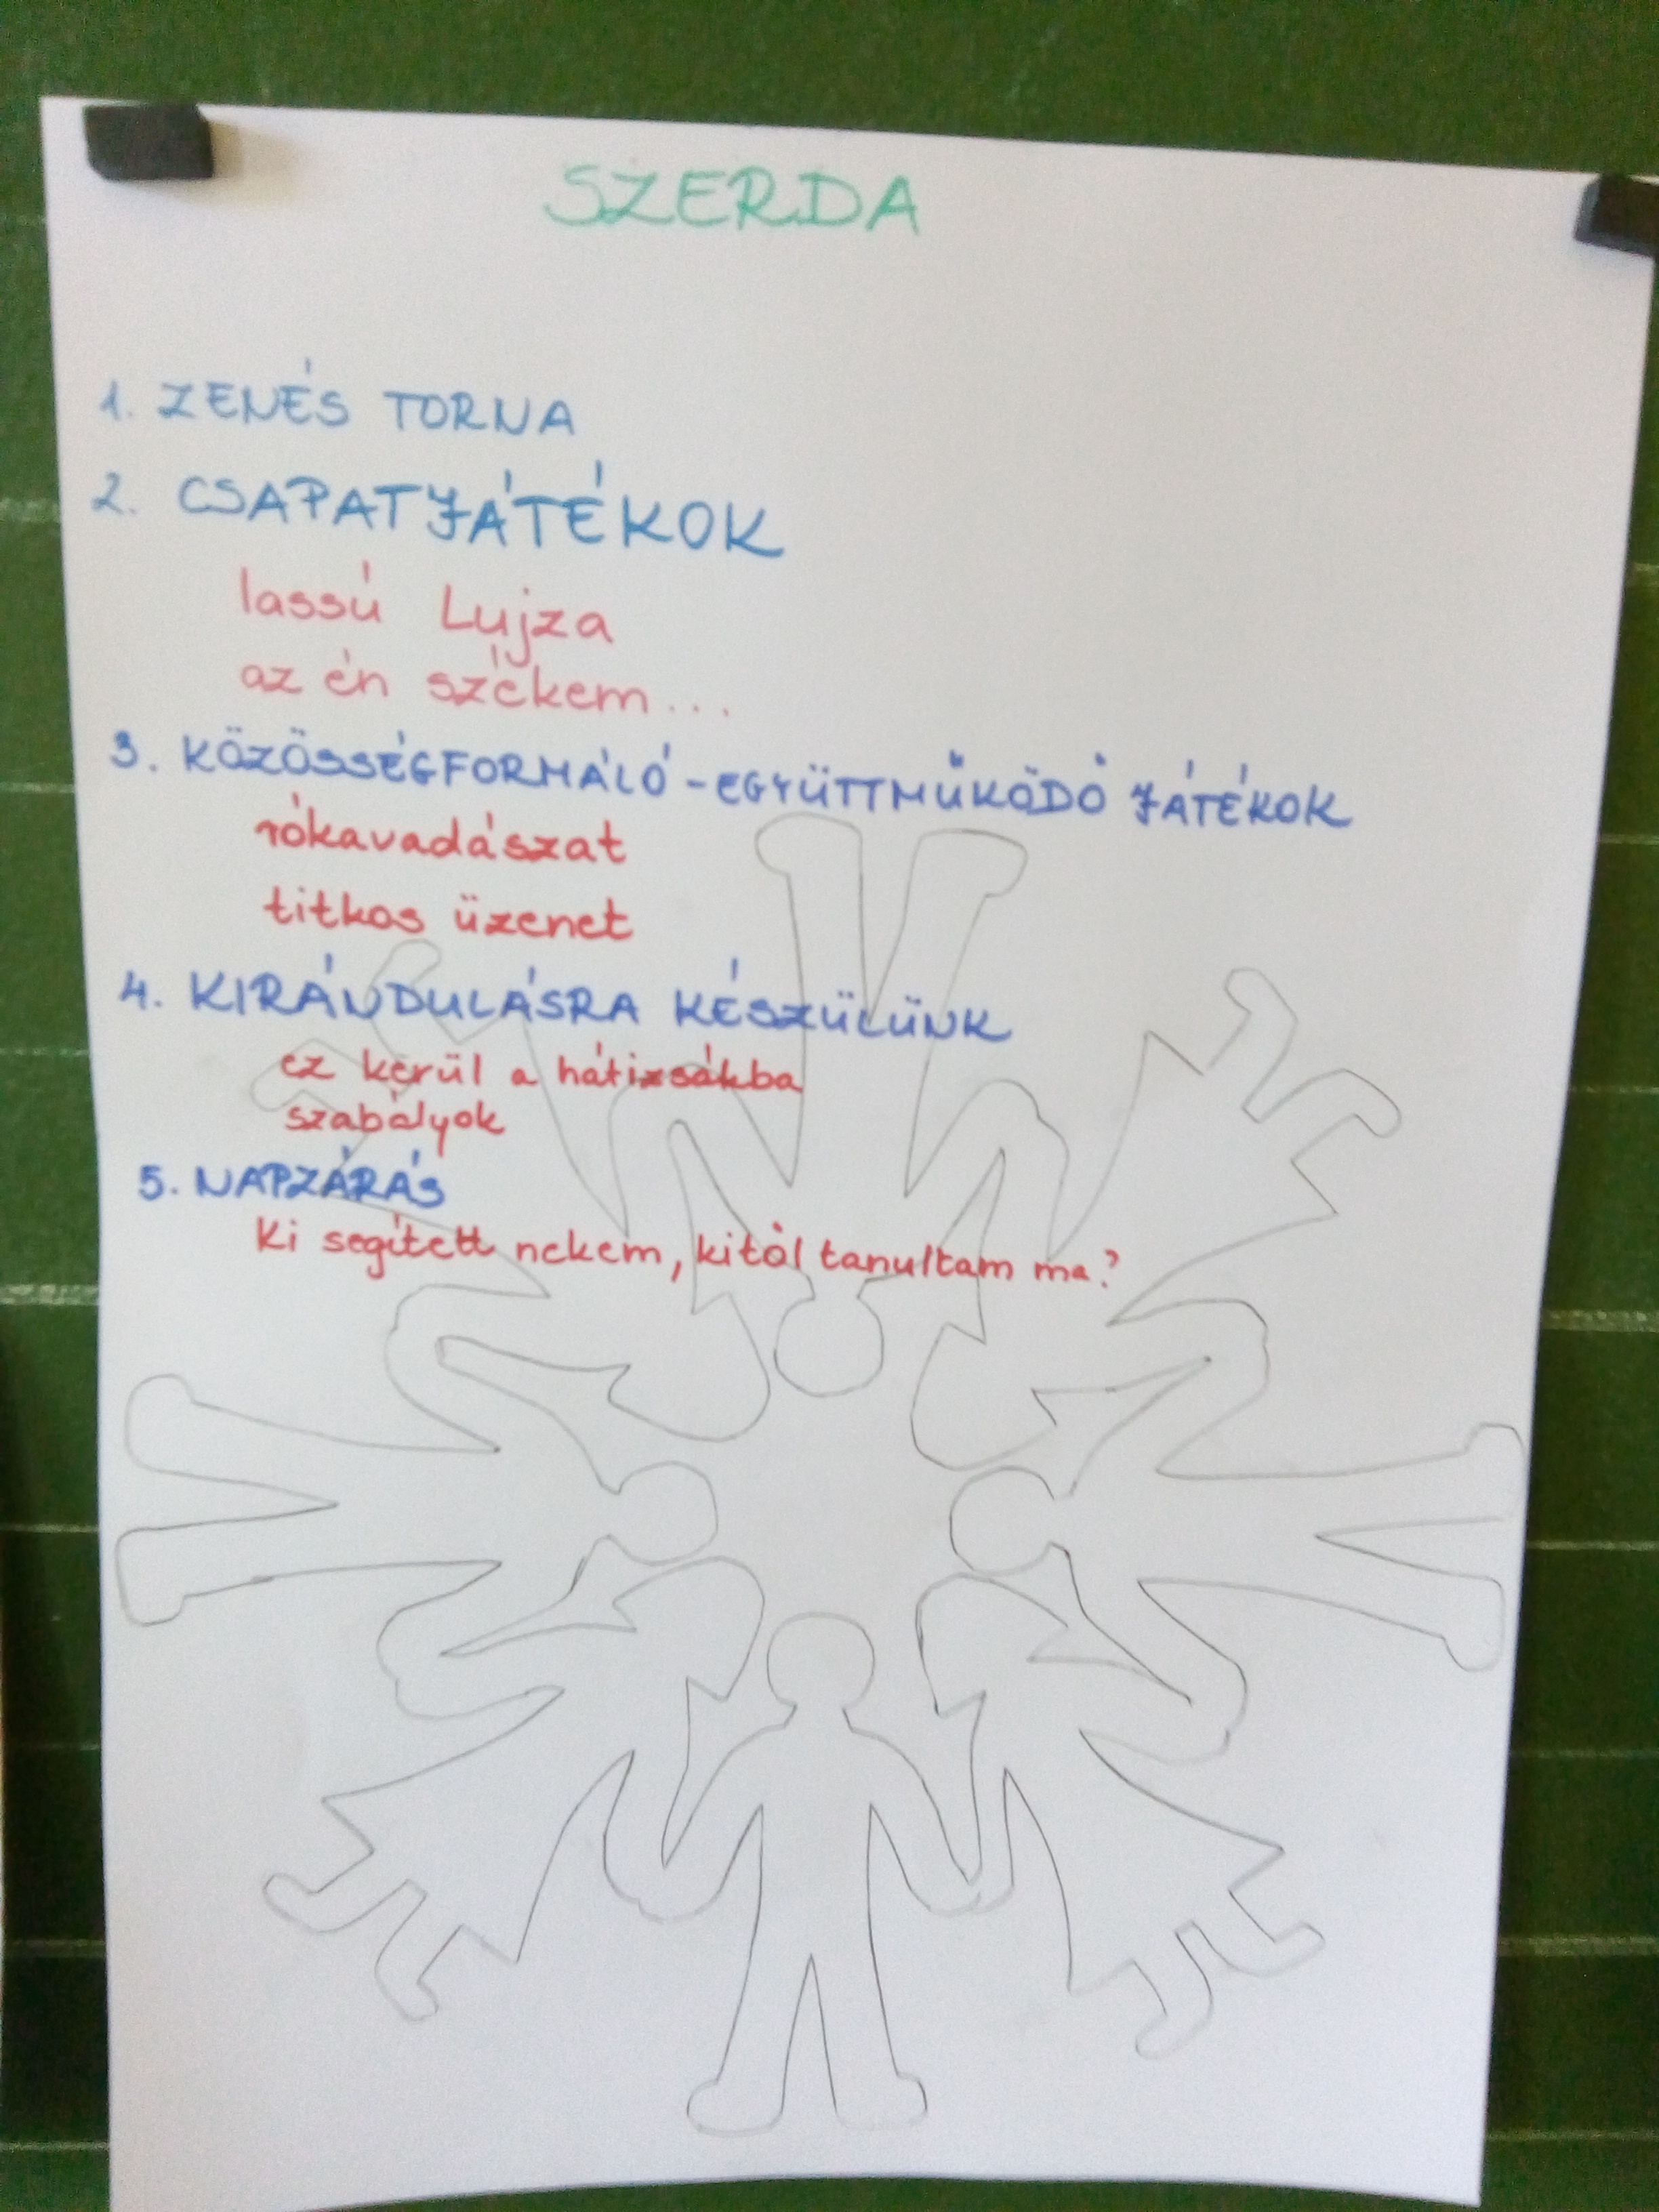 SZERDA
1. ZENÉS TORNA
2. CSAPATJÁTÉKOK
lassú Lujza
az én székem...
3. KÖZÖSSÉGFORMÁLÓ - EGYÜTTMŰKÖDŐ JÁTÉKOK
rókavadászat
titkos üzenet
4. KIRÁNDULÁSRA KÉSZÜLÜNK
ez kerül a hátizsákba
szabályok
5. NAPZÁRÁS
Ki segített nekem, kitől tanultam ma?